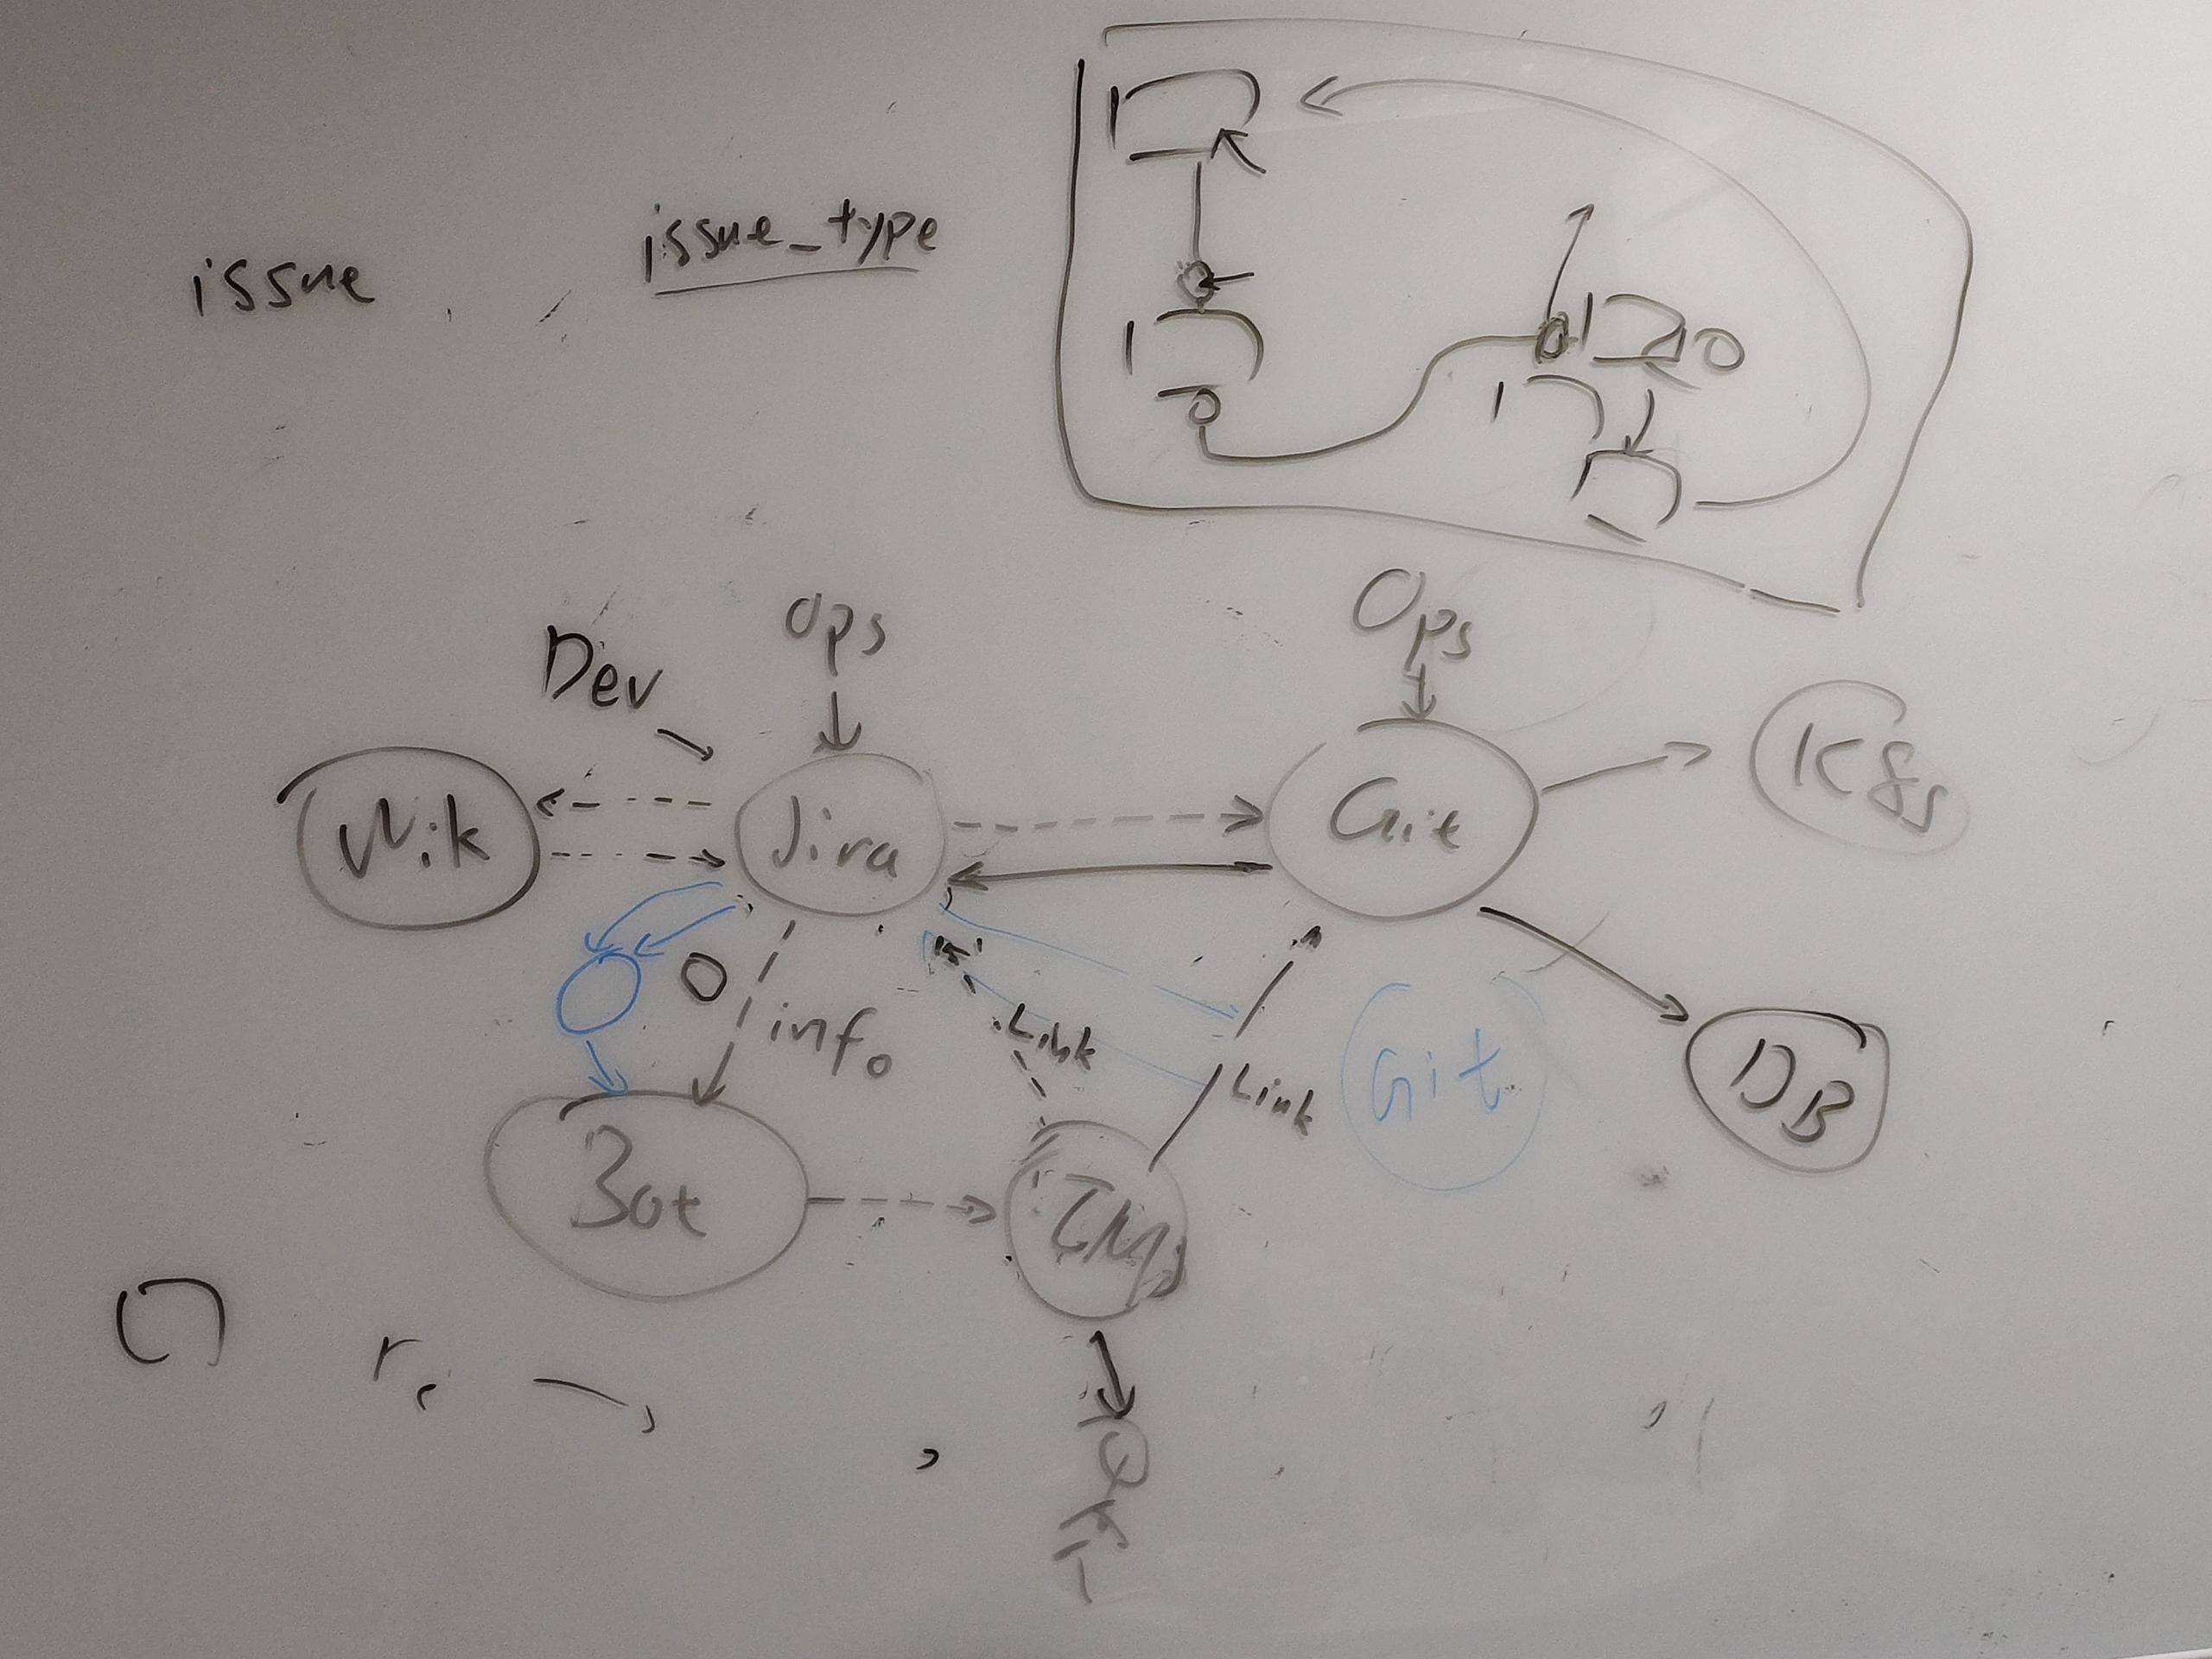 issue
issue_type
Dev
Ops
Ops
Wik
Jira
Git
K8s
info
Link
Link
Git
DB
Bot
IM